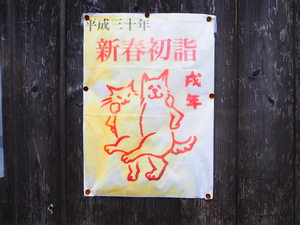 平成三十年
新春初詣
戌年